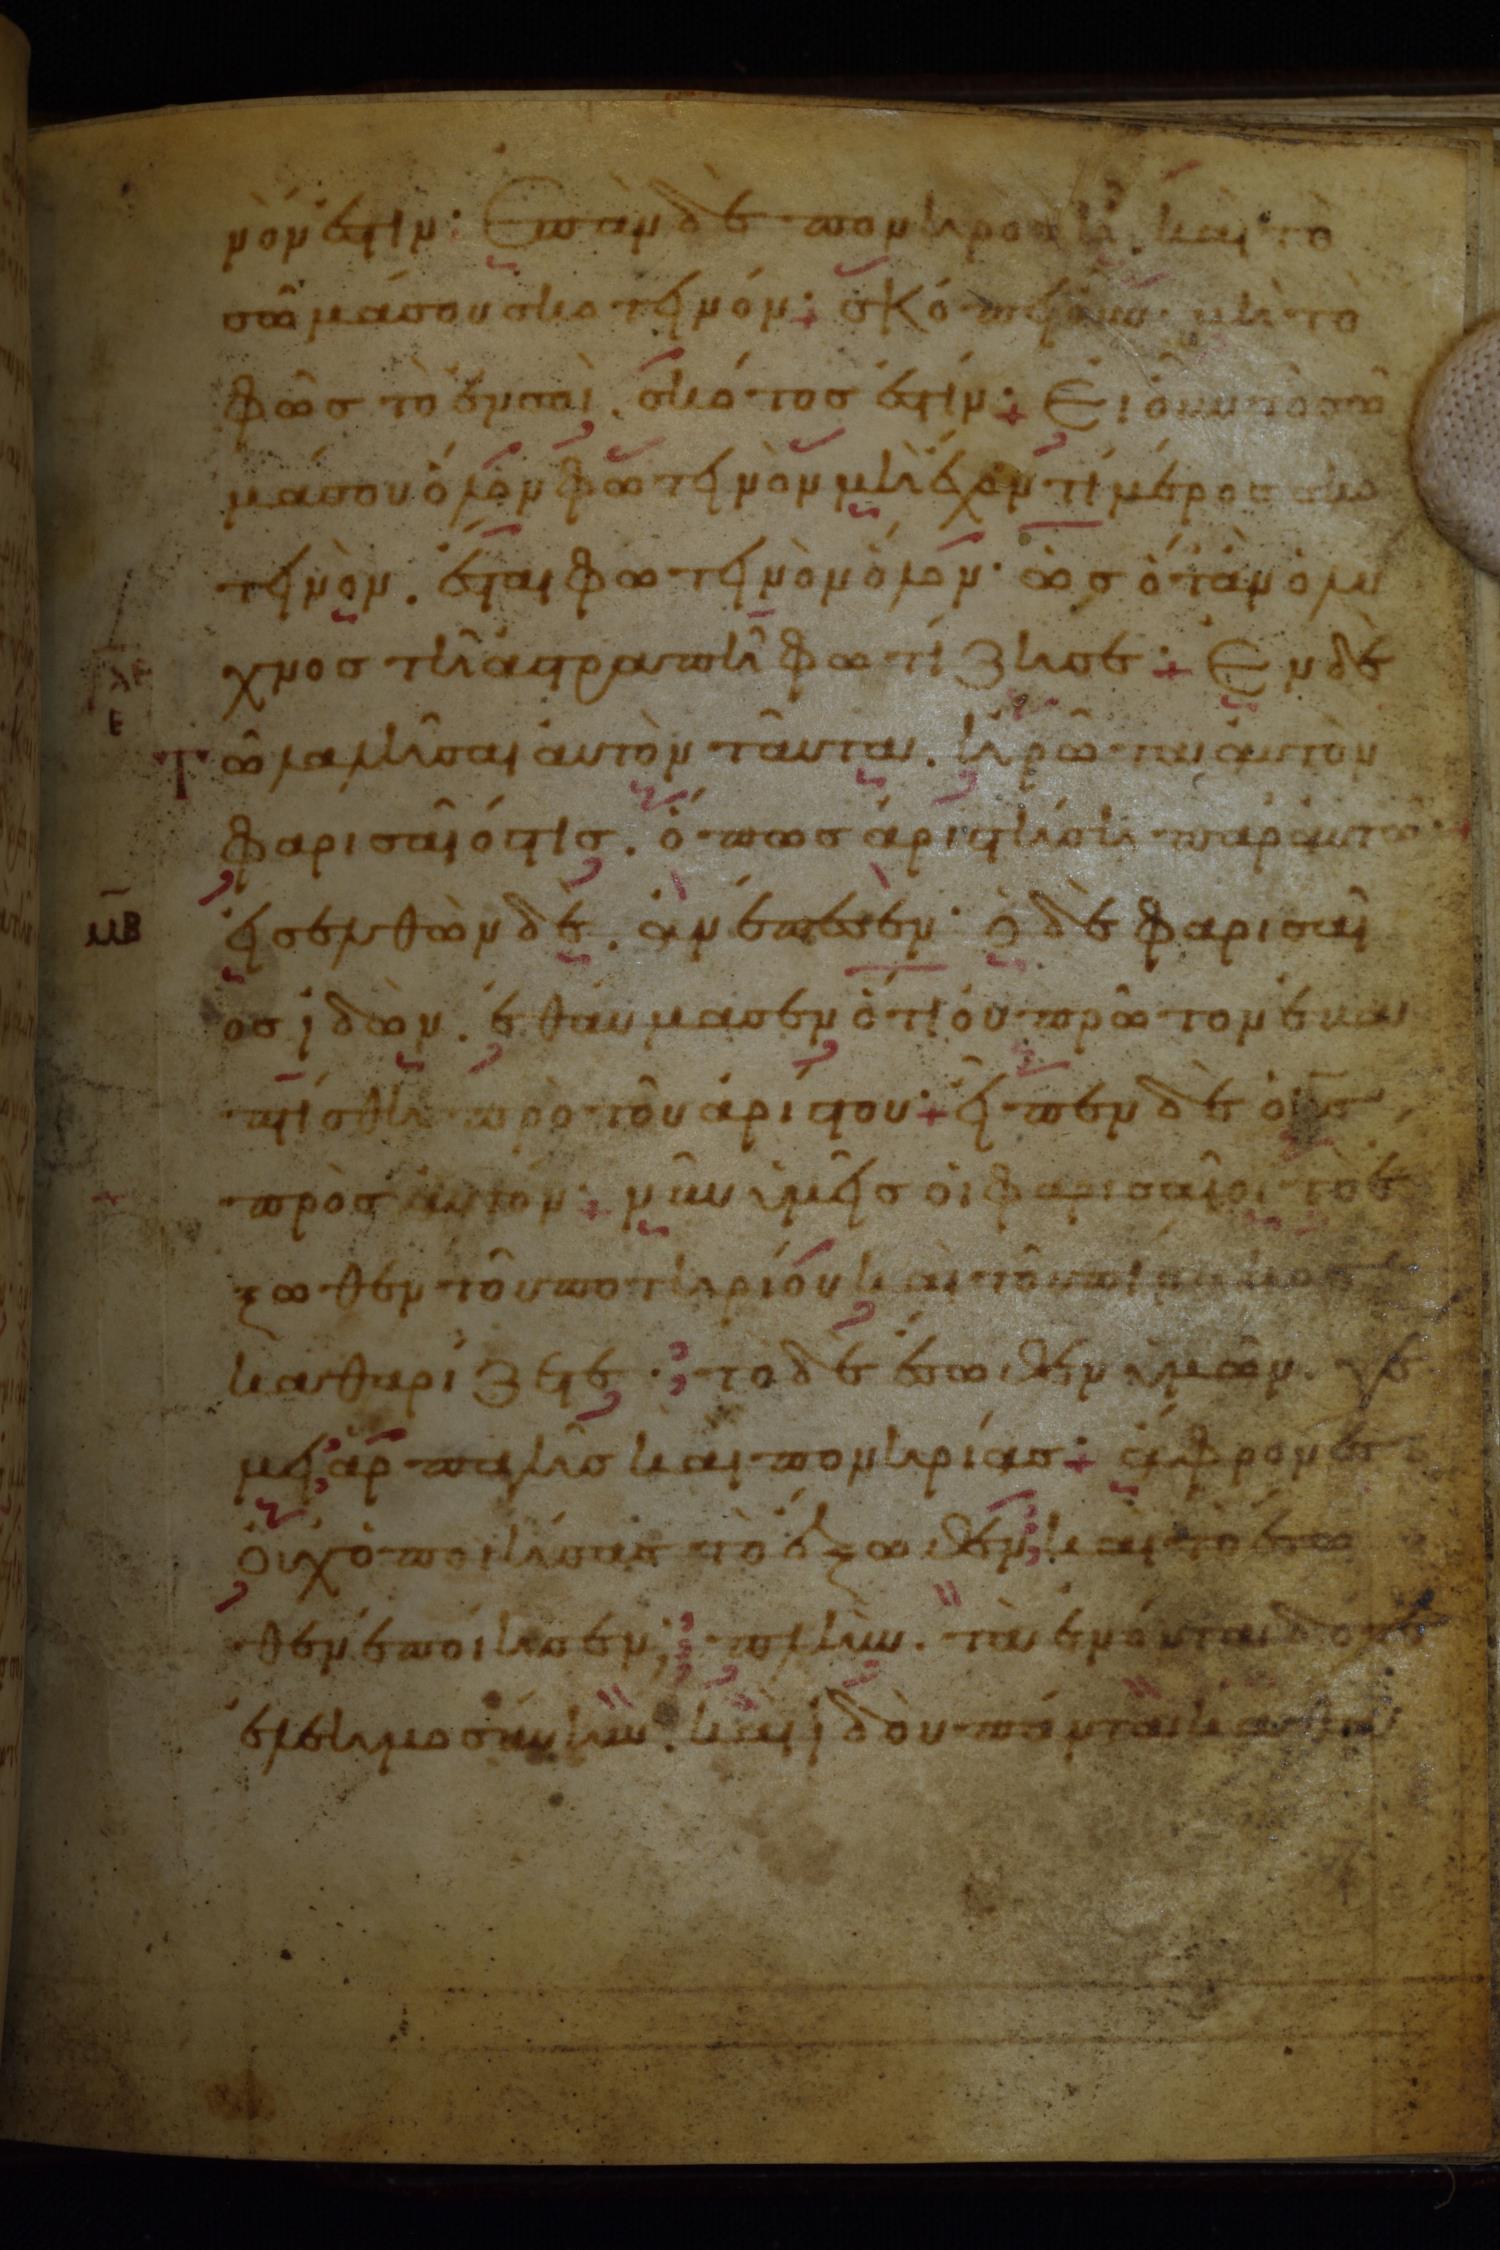 νόν ἐστιν· Ἐπὰν δὲ πονηρὸς ἦ, καὶ τὸ
σῶμά σου σκοτεινόν· σκόπει οὖν μὴ τὸ
φῶς τὸ ἐν σοὶ, σκότος ἐστίν· Εἰ οὖν τὸ σῶ
μά σου ὅλον φωτεινὸν μὴ ἔχον τί μέρος σκο
τεινὸν. ἔσται φωτεινὸν ὅλον· ὡς ὅταν ὁ λύ
χνος τῆ ἀστραπῆ φωτίζη σε· Ἐν δὲ
τῶ λαλῆσαι αὐτὸν ταῦτα. ἠρῶτα αὐτὸν
φαρισαῖός τις. ὅπως ἀριστήση παρ' αὐτῶ·
μβ εἰσελθὼν δὲ. ἀνέπεσεν· ὁ δὲ φαρισαῖ
ος ἰδὼν. ἐθαύμασεν ὅτι οὐ πρῶτον ἐβα
πτίσθη πρὸ τοῦ ἀρίστου· εἶπεν δὲ ὁ ις
πρὸς αὐτόν· νῦν ὑμεῖς οἱ φαρισαῖοι τὸ ἔ
ξωθεν τοῦ ποτηρίου καὶ τοῦ πίνακος
καθαρίζετε· τὸ δὲ ἔσωθεν ὑμῶν. γέ
μει ἁρπαγῆς καὶ πονηρίας· ἄφρονες
οὐχ ὁ ποιήσας τὸ ἔξωθεν καὶ τὸ ἔσω
θεν ἐποίησεν; πλὴν. τὰ ἐνόντα δότε
ἐλεημοσύνην. καὶ ἰδοὺ πάντα καθα